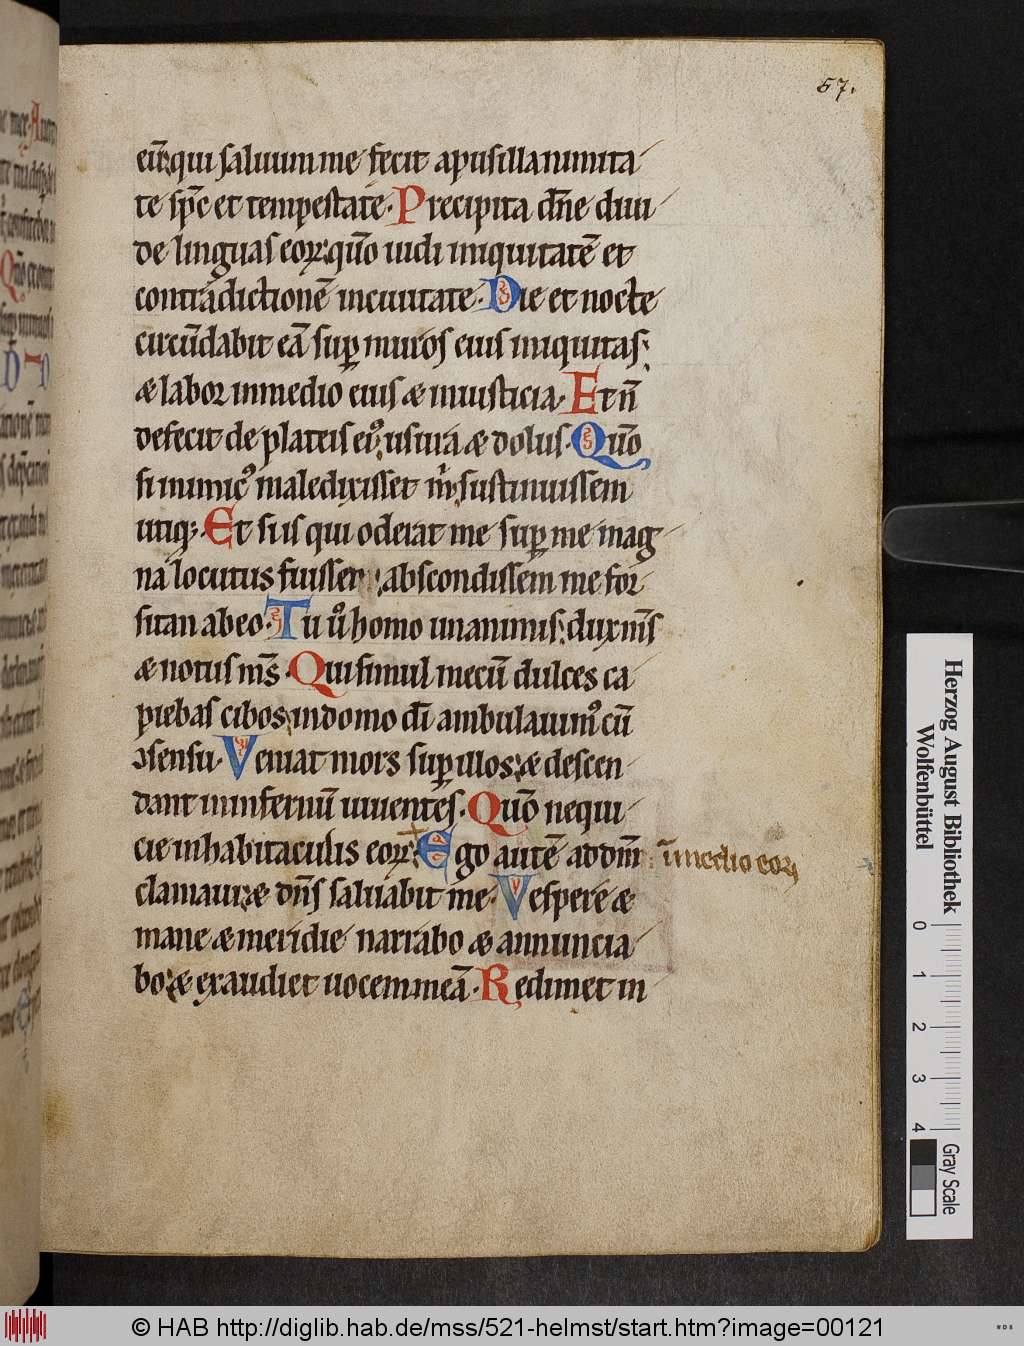 57.
eū;qui saluum me fecit apusillanimita
te sp̄c et tempestate. Precipita dn̄e diui
de linguas eoꝝ;qūo uidi iniquitatē et
contradictionē inciuitate. Die et nocte
circūdabit eā suꝑ muros eius iniquitas;
æ labor inmedio eius æ iniusticia. Et n̄
defecit de plateis ei᷒;usura æ dolus. Qūo
si inimic᷒ maledixisset m̄;sustinuissem
utiqꝫ. Et si is qui oderat me suꝑ me mag
na locutus fuisset;abscondissem me for
sitan abeo. Tu ů homo unanimis;dux ms̄
æ notus ms̄. Qui simul mecū dulces ca
piebas cibos;indomo dī ambulauim᷒ cū
ꝯsensu. Veniat mors suꝑ illos;æ descen
dant ininfernū uiuentes. Qūo nequi
cie inhabitaculis eoꝝ; Ego autē ad dn̄m
īn medio eoꝝ
clamaui;æ dn̄s saluabit me. Vespere æ
mane æ meridie narrabo æ annuncia
bo;æ exaudiet uocem meā. Redimet in
Herzog August Bibliothek
Wolfenbüttel
0 1 2 3 4
Gray Scale
© HAB http://diglib.hab.de/mss/521-helmst/start.htm?image=00121